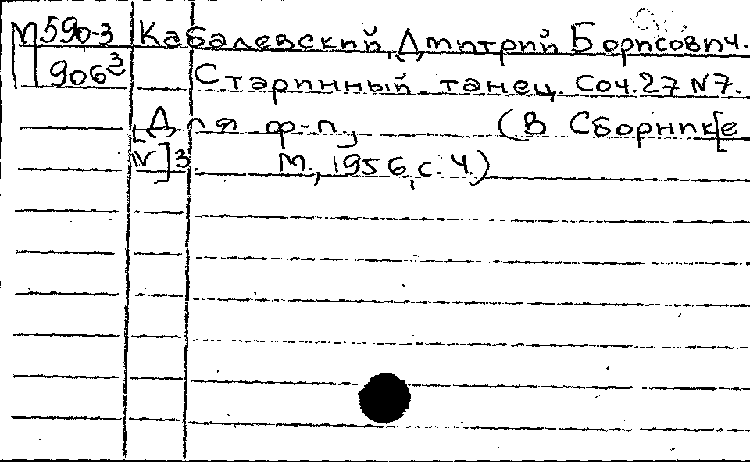 М590-3 Кабалевский, Дмитрий Борисович.
906³ Старинный танец. Соч.27 №7.
Для ф-п, (В сборнике [
№]3 М., 1956, с. 4.)